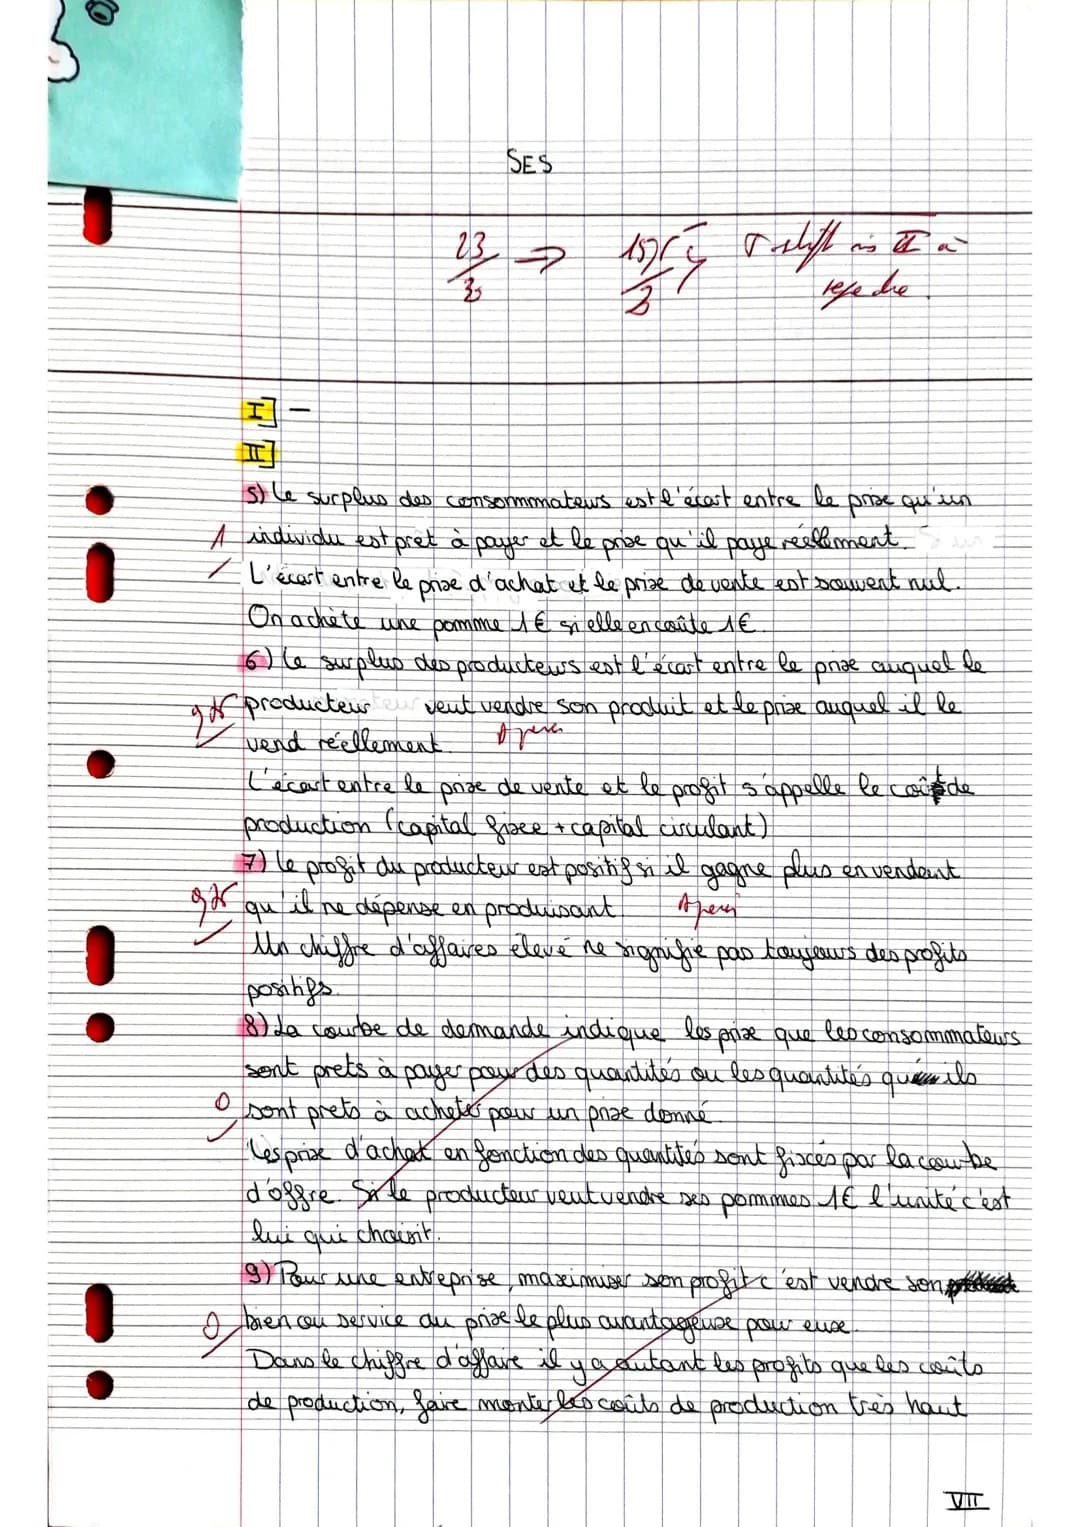 SES
23
I] -
II]
5) Le surplus des consommmateurs est l'écart entre le prix qu'un
1 individu est prêt à payer et le prix qu'il paye réellement.
L'écart entre le prix d'achat et le prix de vente est souvent nul.
On achète une pomme 1€ si elle en coûte 1€.
6) Le surplus des producteurs est l'écart entre le prix auquel le
producteur veut vendre son produit et le prix auquel il le
vend réellement.
L'écart entre le prix de vente et le profit s'appelle le coût de
production (capital fixe + capital circulant)
7) Le profit du producteur est positif si il gagne plus en vendant
qu'il ne dépense en produisant.
Un chiffre d'affaires élevé ne signifie pas toujours des profits
positifs.
8) La courbe de demande indique les prix que les consommateurs
sont prets à payer pour des quantités ou les quantités qu'ils
0 sont prets à acheter pour un prix donné.
Les prix d'achat en fonction des quantités sont fixés par la courbe
d'offre. Si le producteur veut vendre ses pommes 1€ l'unité c'est
lui qui choisit.
9) Pour une entreprise, maximiser son profit c'est vendre son
0 bien ou service au prix le plus avantageux pour eux.
Dans le chiffre d'affaire il y a autant les profits que les coûts
de production, faire monter les coûts de production très haut
VII